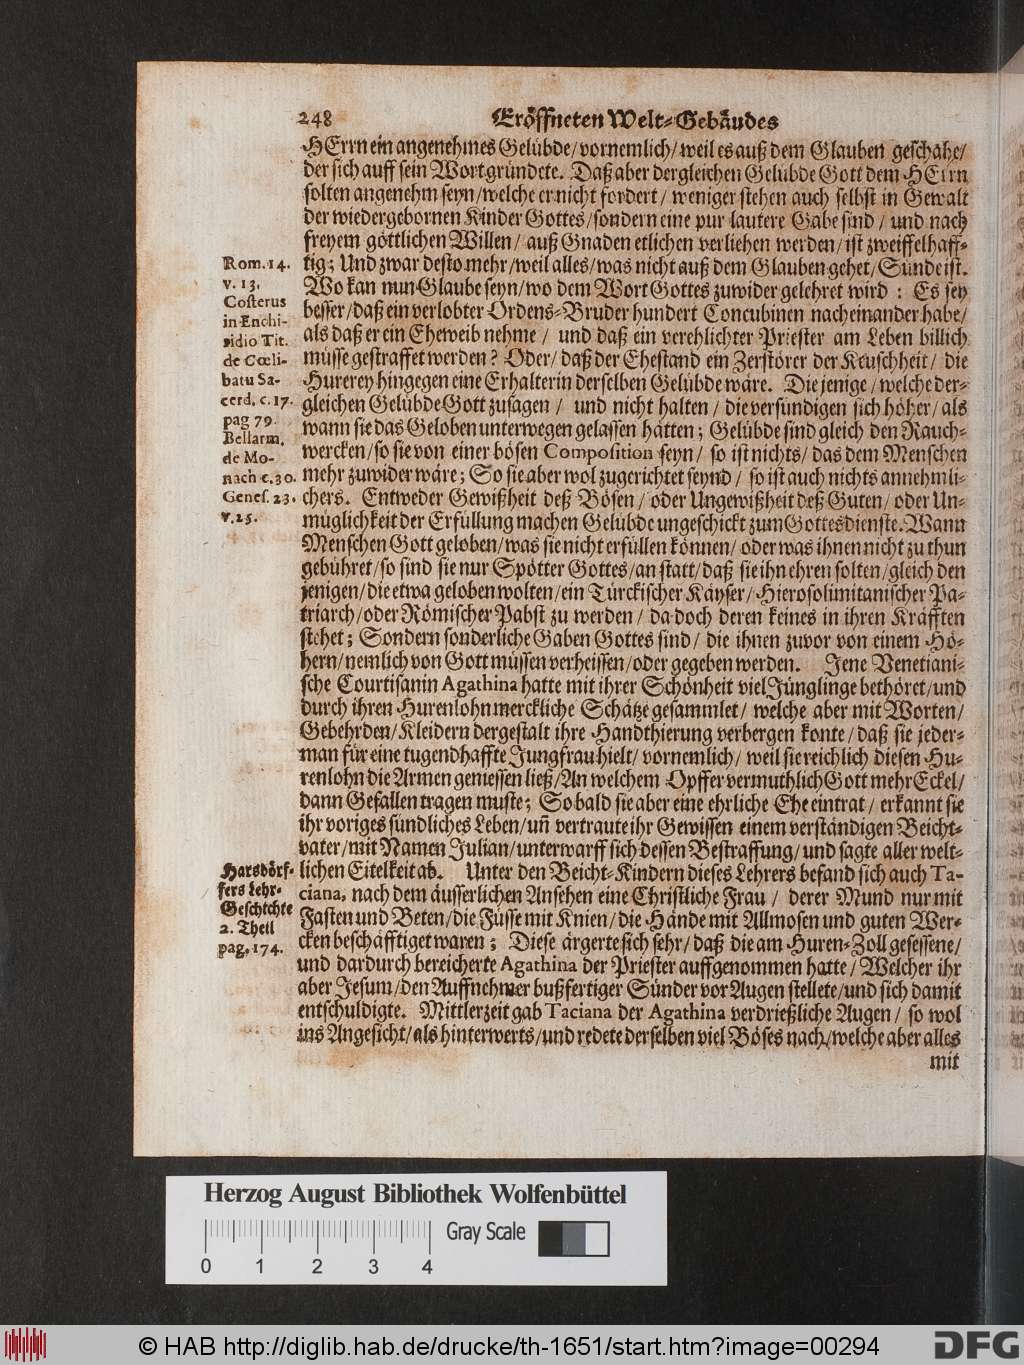 248 Eröffneten Welt-Gebäudes
HErrn ein angenehmes Gelübde/ vornemlich/ weil es auß dem Glauben geschähe/
der sich auff sein Wort gründete. Daß aber dergleichen Gelübde Gott dem HErrn
solten angenehm seyn/ welche er nicht fordert/ weniger stehen auch selbst in Gewalt
der wiedergebornen Kinder Gottes/ sondern eine pur lautere Gabe sind/ und nach
freyem göttlichen Willen/ auß Gnaden etlichen verliehen werden/ ist zweiffelhaff-
tig; Und zwar desto mehr/ weil alles/ was nicht auß dem Glauben gehet/ Sünde ist.
Wo kan nun Glaube seyn/ wo dem Wort Gottes zuwider gelehret wird: Es sey
besser/ daß ein verlobter Ordens-Bruder hundert Concubinen nacheinander habe/
als daß er ein Eheweib nehme/ und daß ein verehlichter Priester am Leben billich
müsse gestraffet werden? Oder/ daß der Ehestand ein Zerstörer der Keuschheit/ die
Hurerey hingegen eine Erhalterin derselben Gelübde wäre. Die jenige/ welche der-
gleichen Gelübde Gott zusagen/ und nicht halten/ die versündigen sich höher/ als
wann sie das Geloben unterwegen gelassen hätten; Gelübde sind gleich den Rauch-
wercken/ so sie von einer bösen Composition seyn/ so ist nichts/ das dem Menschen
mehr zuwider wäre; So sie aber wol zugerichtet seynd/ so ist auch nichts annehmli-
chers. Entweder Gewißheit deß Bösen/ oder Ungewißheit deß Guten/ oder Un-
müglichkeit der Erfüllung machen Gelübde ungeschickt zum Gottesdienste. Wann
Menschen Gott geloben/ was sie nicht erfüllen können/ oder was ihnen nicht zu thun
gebühret/ so sind sie nur Spötter Gottes/ an statt/ daß sie ihn ehren solten/ gleich den
jenigen/ die etwa geloben wolten/ ein Türckischer Käyser/ Hierosolimitanischer Pa-
triarch/ oder Römischer Pabst zu werden/ da doch deren keines in ihren Kräfften
stehet; Sondern sonderliche Gaben Gottes sind/ die ihnen zuvor von einem Hö-
hern/ nemlich von Gott müssen verheissen/ oder gegeben werden. Jene Venetiani-
sche Courtisanin Agathina hatte mit ihrer Schönheit viel Jünglinge bethöret/ und
durch ihren Hurenlohn merckliche Schätze gesammlet/ welche aber mit Worten/
Gebehrden/ Kleidern dergestalt ihre Handthierung verbergen konte/ daß sie jeder-
man für eine tugendhaffte Jungfrau hielt/ vornemlich/ weil sie reichlich diesen Hu-
renlohn die Armen geniessen ließ/ An welchem Opffer vermuthlich Gott mehr Eckel/
dann Gefallen tragen muste; So bald sie aber eine ehrliche Ehe eintrat/ erkannt sie
ihr voriges sündliches Leben/ uñ vertraute ihr Gewissen einem verständigen Beicht-
vater/ mit Namen Julian/ unterwarff sich dessen Bestraffung/ und sagte aller welt-
lichen Eitelkeit ab. Unter den Beicht-Kindern dieses Lehrers befand sich auch Ta-
ciana, nach dem äusserlichen Ansehen eine Christliche Frau/ derer Mund nur mit
Fasten und Beten/ die Füsse mit Knien/ die Hände mit Allmosen und guten Wer-
cken beschäfftiget waren; Diese ärgerte sich sehr/ daß die am Huren-Zoll gesessene/
und dardurch bereicherte Agathina der Priester auffgenommen hatte/ Welcher ihr
aber Jesum/ den Auffnehmer bußfertiger Sünder vor Augen stellete/ und sich damit
entschuldigte. Mittlerzeit gab Taciana der Agathina verdrießliche Augen/ so wol
ins Angesicht/ als hinterwerts/ und redete derselben viel Böses nach/ welche aber alles
mit
Rom. 14.
v. 13.
Costerus
in Enchi-
ridio Tit.
de Cœli-
batu Sa-
cerd. c. 17.
pag 79.
Bellarm.
de Mo-
nach c. 30.
Genes. 23.
v. 25.
Harsdörf-
fers Lehr-
Geschichte
2. Theil
pag. 174.
Herzog August Bibliothek Wolfenbüttel
Gray Scale
0 1 2 3 4
© HAB http://diglib.hab.de/drucke/th-1651/start.htm?image=00294
DFG